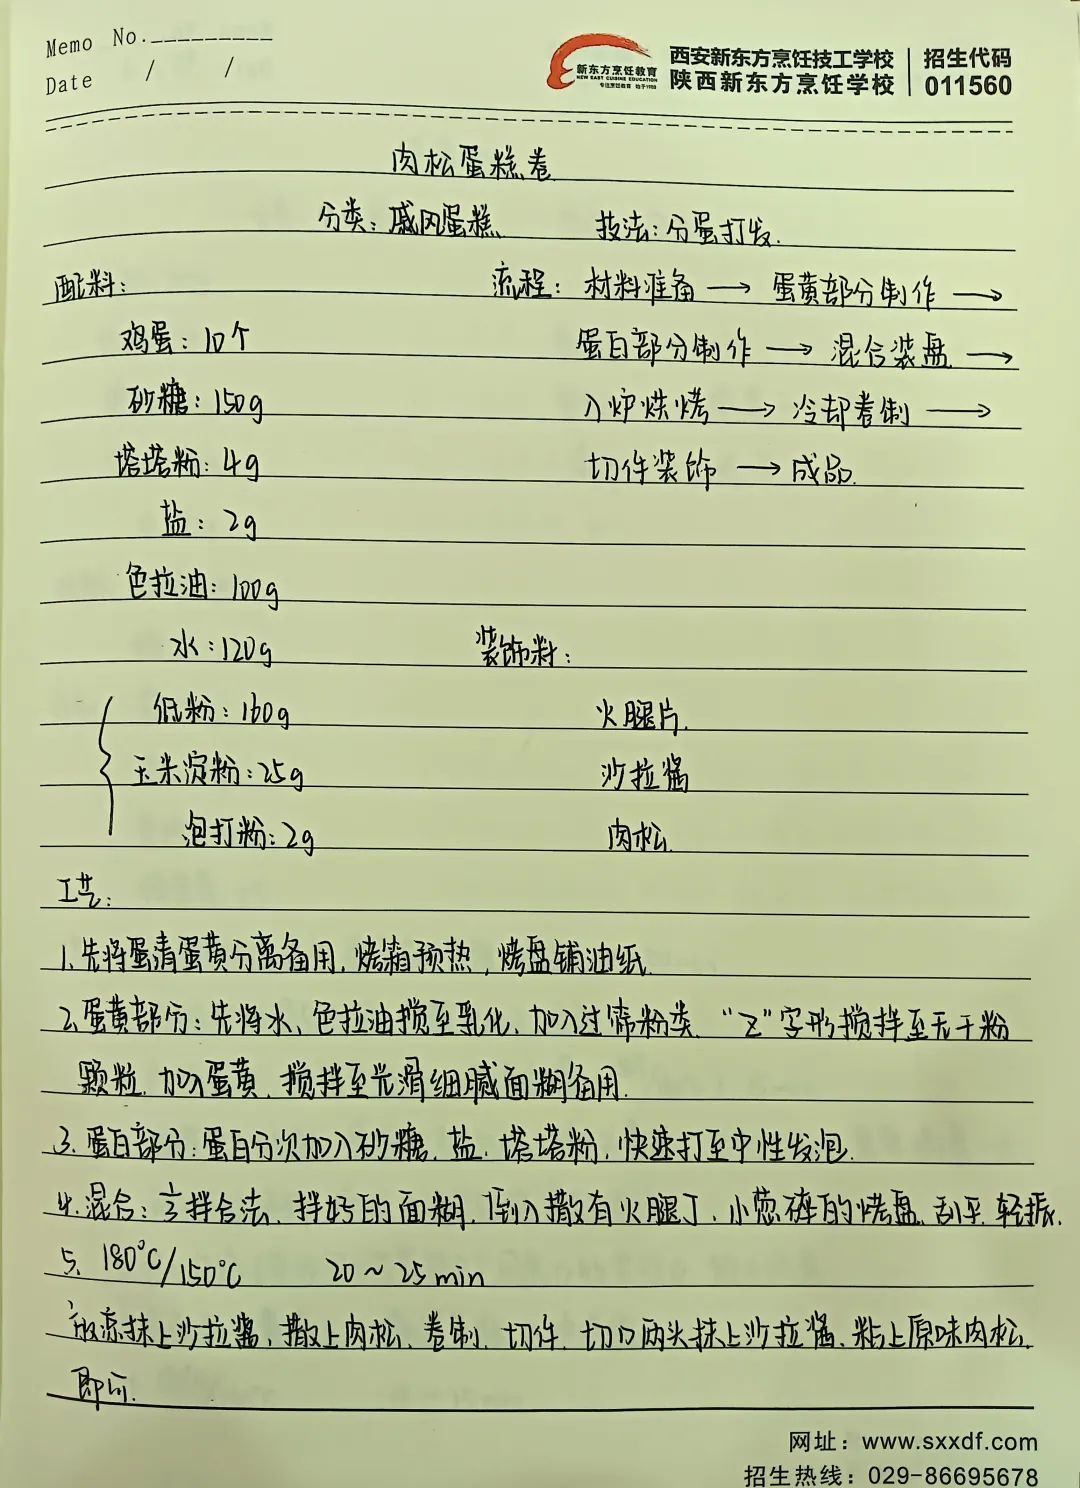 Memo No.
Date / /
新东方烹饪教育
NEW EAST CUISINE EDUCATION
西安新东方烹饪技工学校
陕西新东方烹饪学校
招生代码
011560
肉松蛋糕卷
分类：戚风蛋糕 技法：分蛋打发.
配料： 流程：材料准备 → 蛋黄部分制作 →
鸡蛋：10个 蛋白部分制作 → 混合装盘 →
砂糖：150g 入炉烘烤 → 冷却卷制 →
塔塔粉：4g 切件装饰 → 成品.
盐：2g
色拉油：100g
水：120g 装饰料：
低粉：160g 火腿片.
玉米淀粉：25g 沙拉酱
泡打粉：2g 肉松.
工艺：
1.先将蛋清蛋黄分离备用，烤箱预热，烤盘铺油纸.
2.蛋黄部分：先将水、色拉油搅至乳化，加入过筛粉类 “Z”字形搅拌至无干粉
颗粒，加入蛋黄，搅拌至光滑细腻面糊备用.
3.蛋白部分：蛋白分次加入砂糖、盐、塔塔粉，快速打至中性发泡.
4.混合：亠拌合法，拌好的面糊，倒入撒有火腿丁、小葱碎的烤盘，刮平，轻振.
5、180°C/150°C 20～25min
放凉抹上沙拉酱，撒上肉松，卷制，切件，切口两头抹上沙拉酱、粘上原味肉松.
即可.
网址：www.sxxdf.com
招生热线：029-86695678